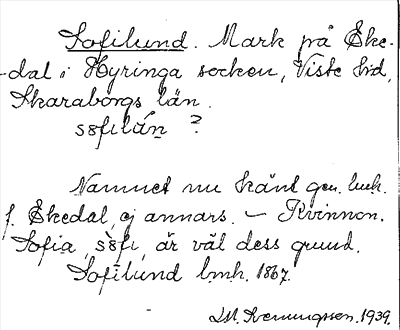 Sofilund. Mark på Eke-
dal i Hyringa socken, Viste hd,
Skaraborgs län.
søfilán ?
Namnet nu känt gen. lmk.
f. Ekedal, ej annars. – Kvinnon.
Sofia, sòfi, är väl dess grund.
Sofilund lmh. 1867.
1939.